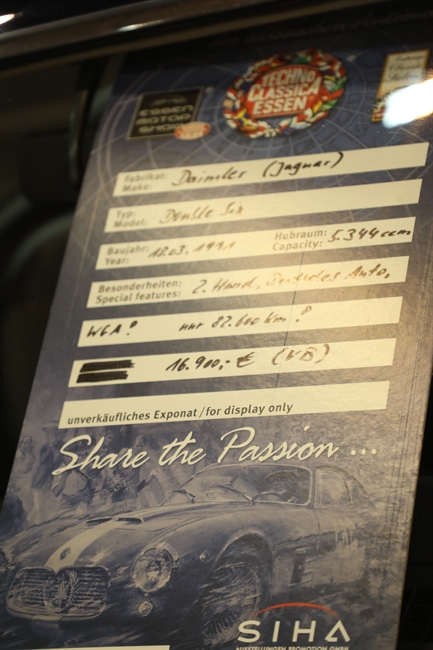 ESSEN
MOTOR
SHOW
TECHNO
CLASSICA
ESSEN
Fabrikat: Daimler (Jaguar)
Make:
Typ: Double Six
Model:
Baujahr: 18.03.1991 Hubraum: 5.344 ccm
Year: Capacity:
Besonderheiten: 2. Hand, Auto,
Special features:
WGA! nur 82.600 km!
16.900,- € (VB)
unverkäufliches Exponat / for display only
Share the Passion ...
SIHA
AUSSTELLUNGEN PROMOTION GMBH